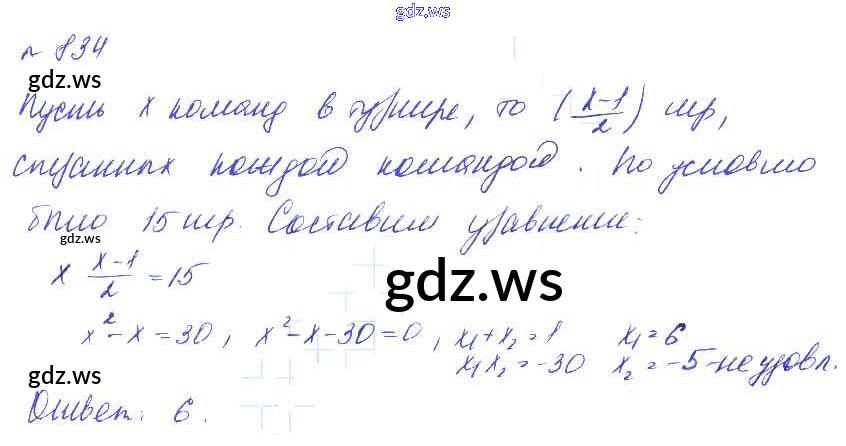 gdz.ws
№ 834
gdz.ws
Пусть x команд в турнире, то (x-1/2) игр,
сыгранных каждой командой. По условию
было 15 игр. Составим уравнение:
gdz.ws
x x-1/2 = 15
gdz.ws
x² - x = 30, x² - x - 30 = 0, x₁ + x₂ = 1 x₁ = 6
x₁x₂ = -30 x₂ = -5 - не удовл.
gdz.ws
Ответ: 6.
gdz.ws